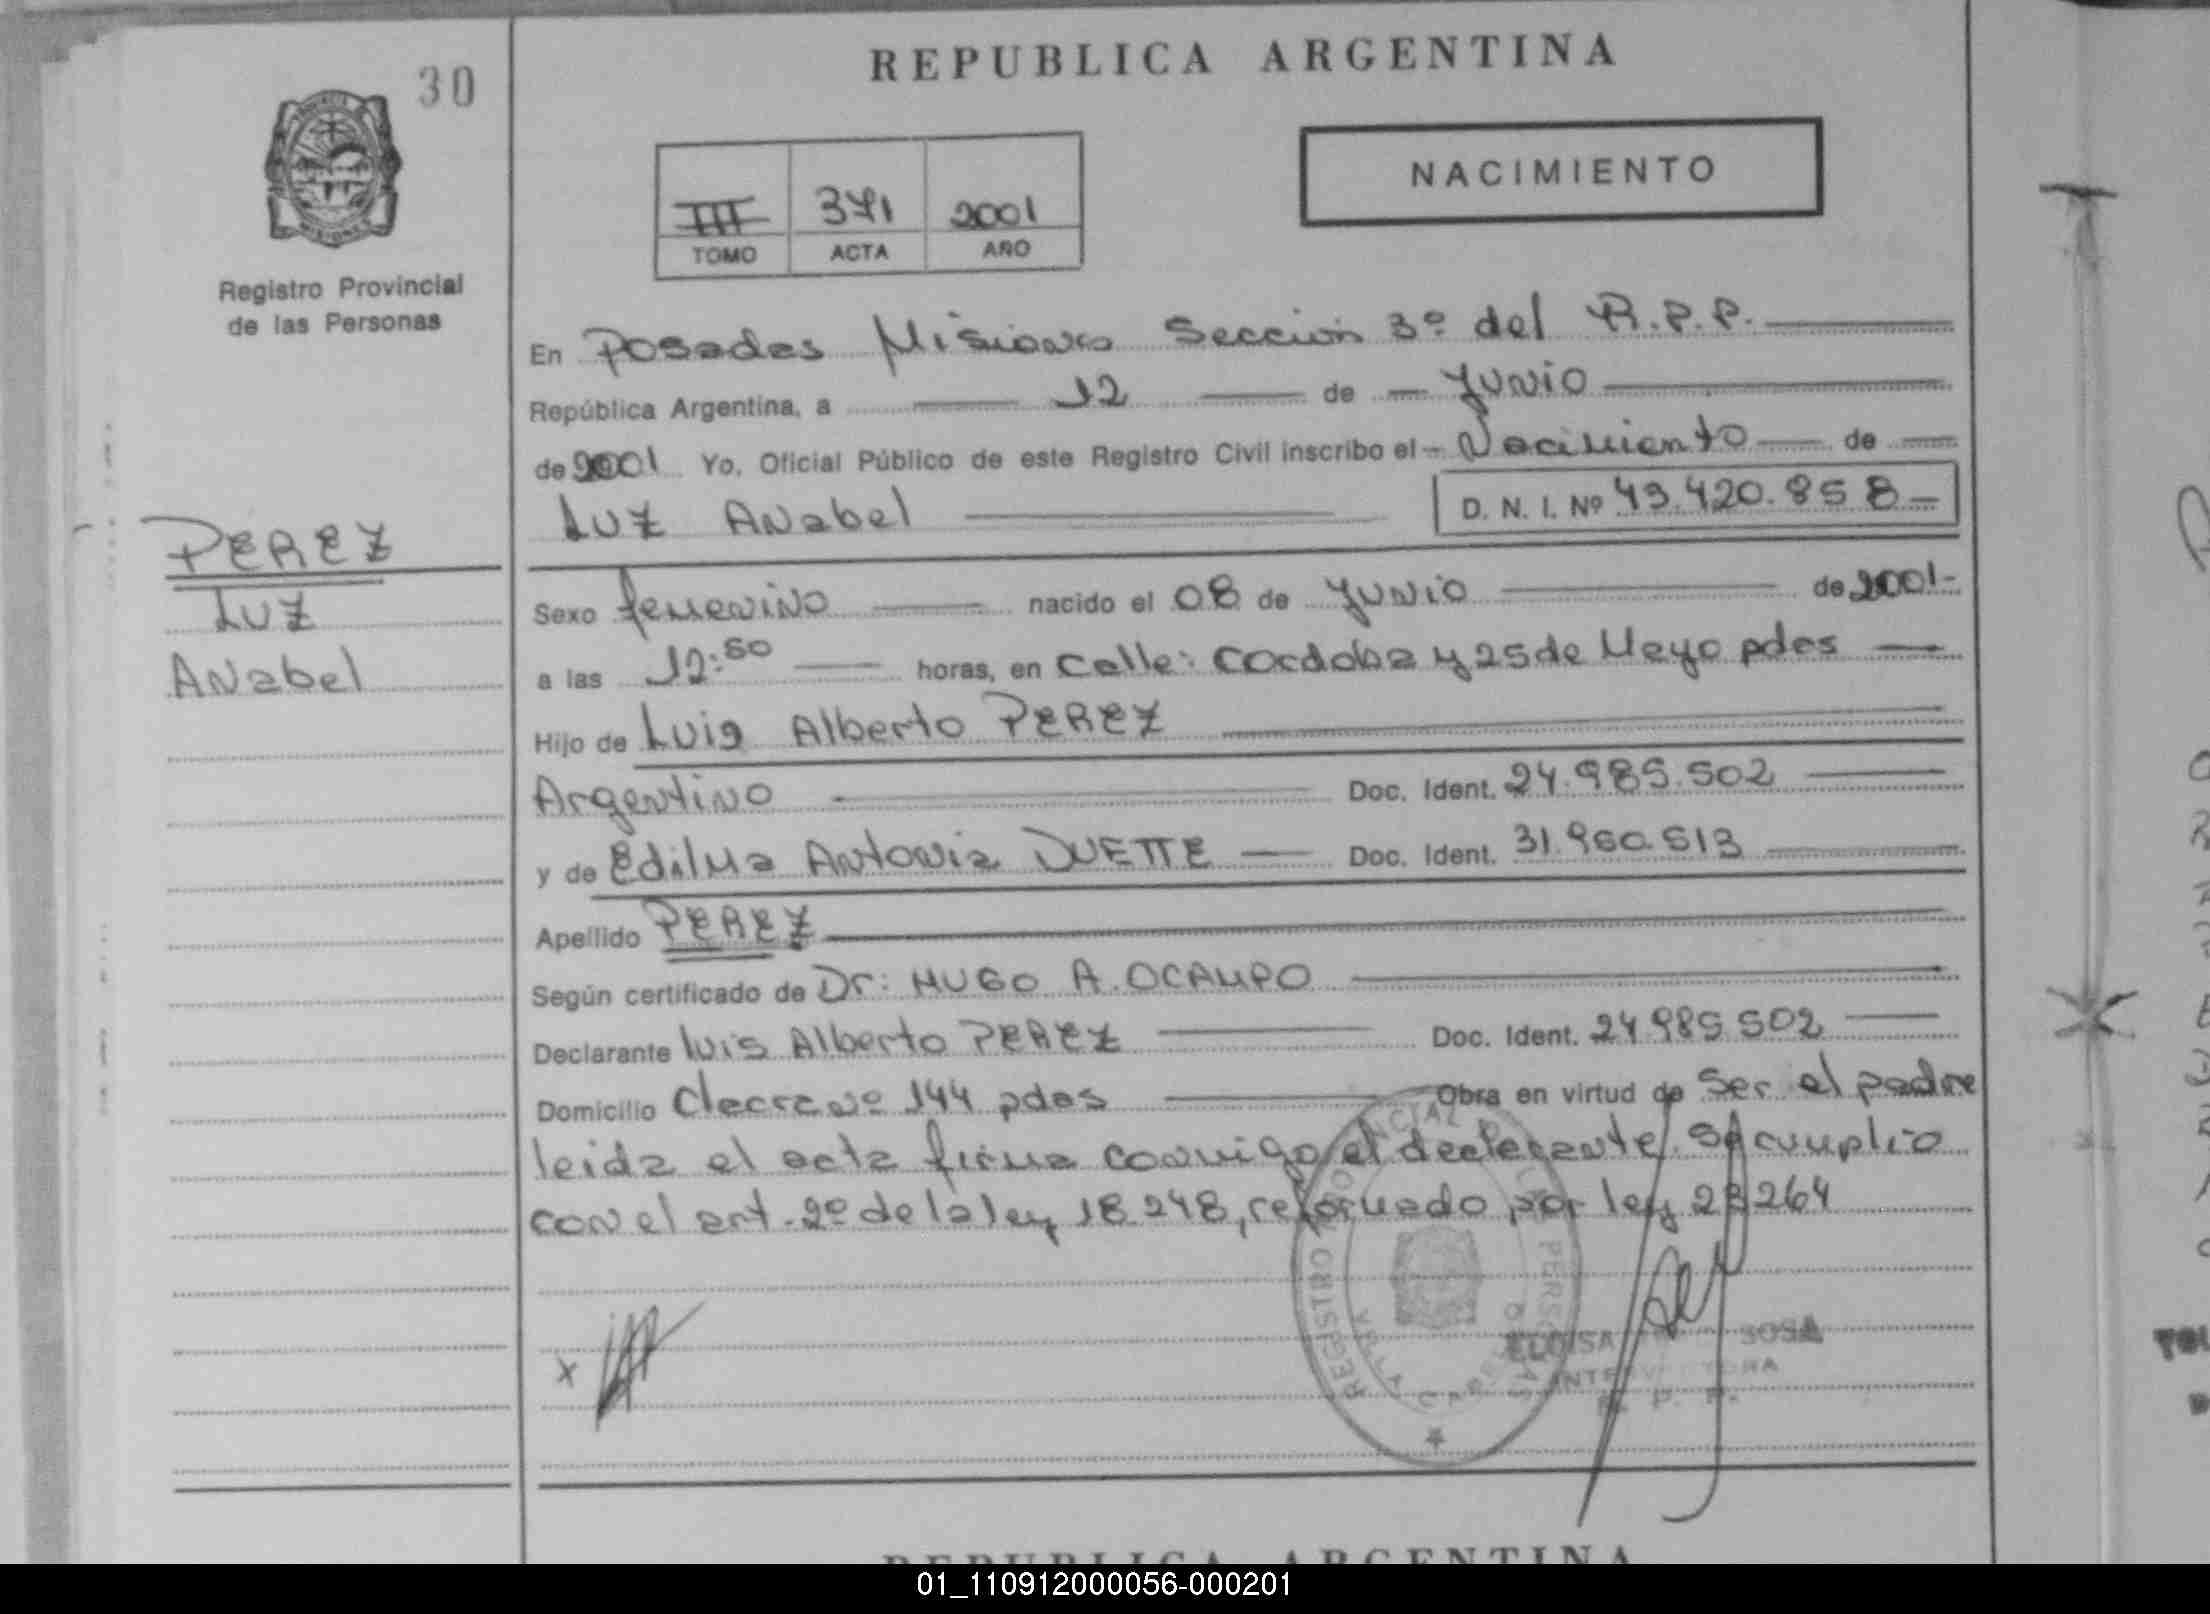 30
REPUBLICA ARGENTINA
NACIMIENTO
III 371 2001
TOMO ACTA AÑO
Registro Provincial
de las Personas
PEREZ
LUZ
Anabel
En Posadas Misiones Sección 3º del R.P.P.
República Argentina, a 12 de Junio
de 2001 Yo, Oficial Público de este Registro Civil inscribo el Nacimiento de
LUZ Anabel D. N. I. Nº 43.420.858
Sexo femenino nacido el 08 de Junio de 2001
a las 12:50 horas, en Calle: Cordoba y 25 de Mayo pdas
Hijo de Luis Alberto PEREZ
Argentino Doc. Ident. 24.985.502
y de Edilma Antonia DUETTE Doc. Ident. 31.960.513
Apellido PEREZ
Según certificado de Dr: HUGO A. OCAMPO
Declarante Luis Alberto PEREZ Doc. Ident. 24 985 502
Domicilio Chacra nº 144 pdas Obra en virtud de ser el padre
leida el acta firma conmigo el declarante. Se cumplio
con el art. 2º de la ley 18.248, reformado por ley 23264
x
REGISTRO PROVINCIAL DE LAS PERSONAS
ELOISA SOSA
INTERVENTORA
R. P. P.
REPUBLICA ARGENTINA
01_110912000056-000201